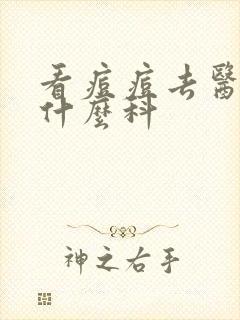 看痘痘去醫
什麼科
神之右手